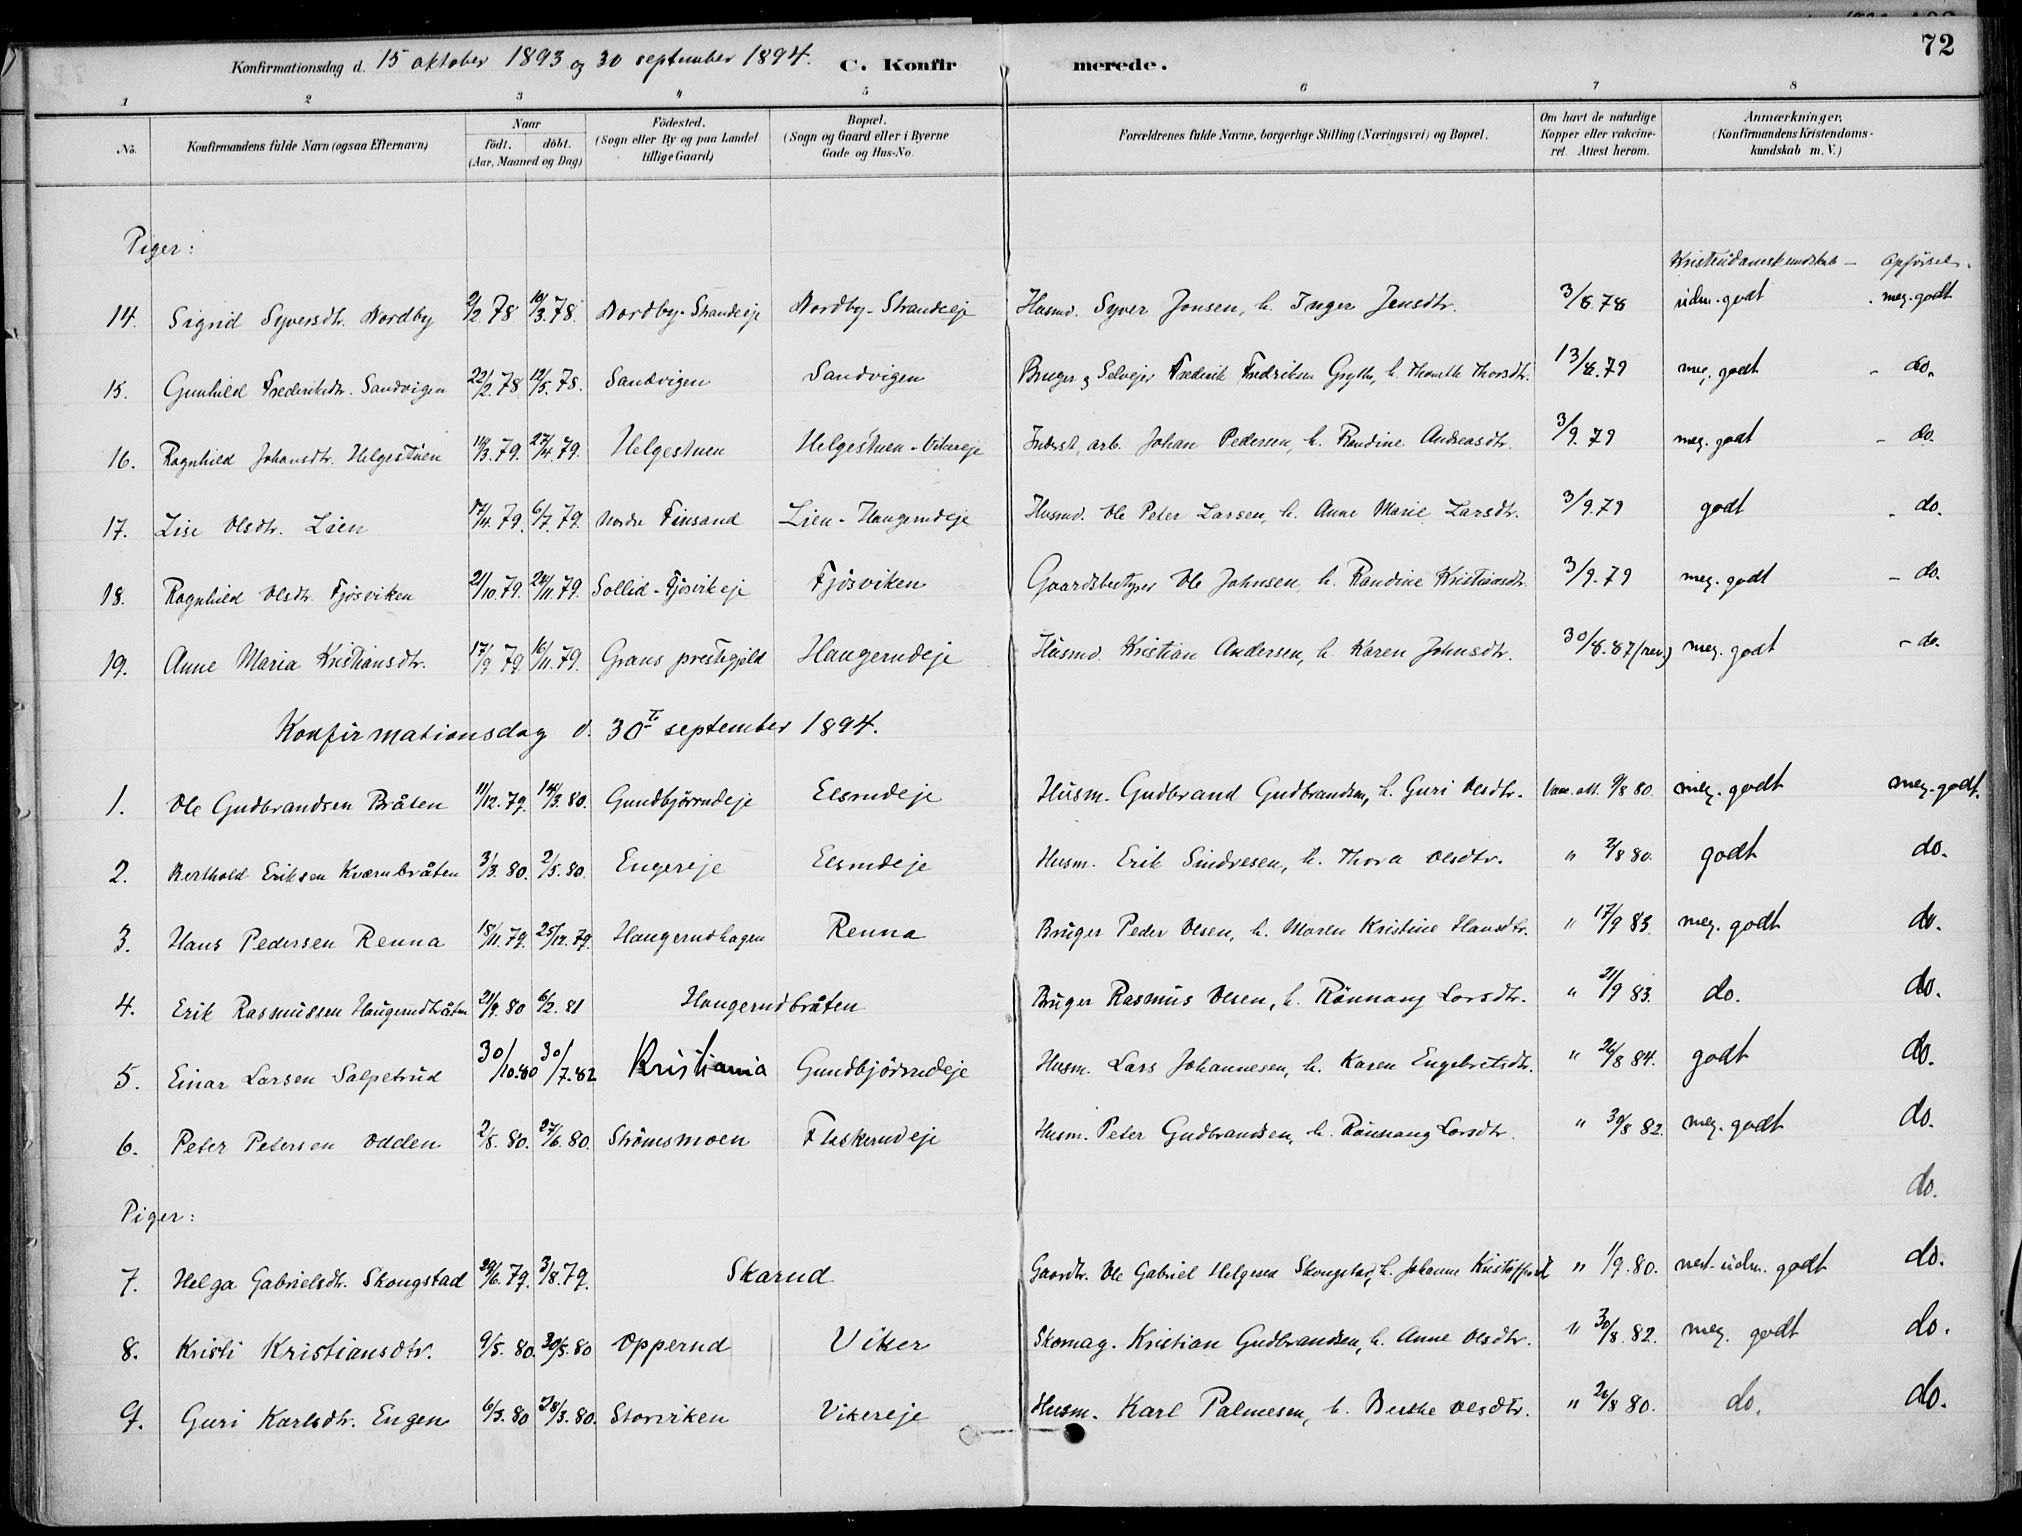 72
Konfirmationsdag d. 15 oktober 1893 og 30 september 1894. C. Konfirmerede.
1 2 3 4 5 6 7 8
No. Konfirmandens fulde Navn (ogsaa Efternavn) Naar født. døbt. (Aar, Maaned og Dag) Födested. (Sogn eller By og paa Landet tillige Gaard) Bopæl. (Sogn og Gaard eller i Byerne Gade og Hus-No. Forældrenes fulde Navne, borgerlige Stilling (Næringsvei) og Bopæl. Om havt de naturlige Kopper eller vakcineret. Attest herom. Anmærkninger, (Konfirmandens Kristendomskundskab m. V.)
Piger:
Kristendomskundskab - Opførsel.
14. Sigrid Syversdtr. Nordby 2/2 78 10/3.78. Nordby-Strandeje Nordby-Strandeje Husmd. Syver Jonsen, h. Inger Jensdtr. 3/8.78 udm. godt - meg. godt
15. Gunhild Frederiksdtr. Sandvigen 22/2.78 12/5.78. Sandvigen Sandvigen Bruger og Selvejer Frederik Fredriksen h. Thorsdtr. 13/8.79 meg. godt - do.
16. Ragnhild Johansdtr. Helgestuen 14/3.79. 27/4.79. Helgestuen Helgestuen-Vikereje Inderst, arb. Johan Pedersen, h. Randine Andreasdtr. 3/9.79 meg. godt - do.
17. Lise Olsdtr. Lien 17/4.79. 6/7.79. Nordre Finsand Lien-Haugerudeje Husmd. Ole Peter Larsen, h. Anne Marie Larsdtr. 3/9.79 godt - do.
18. Ragnhild Olsdtr. Fjösviken 21/10.79. 24/11.79. Sollid-Fjösvikeje Fjösviken Gaardsbestyrer Ole Johnsen, h. Randine Kristiansdtr. 3/9.79 meg. godt - do.
19. Anne Maria Kristiansdtr. 17/9 79 16/11.79. Grans prestegjeld Haugerudeje Husmd. Kristian Andersen, h. Karen Johnsdtr. 30/8.87 (rev.) meg. godt - do.
Konfirmationsdag d. 30te september 1894.
1. Ole Gudbrandsen Bråten 11/12.79. 14/3.80. Gundbjörrudeje Elsrudeje Husm. Gudbrand Gudbrandsen, h. Guri Olsdtr. Vacc. att. 9/8 80. meg. godt meg. godt.
2. Berthold Eriksen Kværnbråten 3/3.80. 2/5.80. Engereje Elsrudeje Husm. Erik Sindresen, h. Thora Olsdtr. " 2/8 80. godt do.
3. Hans Pedersen Renna 18/11.79. 25/12.79. Haugerudhagen Renna Bruger Peder Olsen, h. Maren Kristine Hansdtr. " 17/9 83. meg. godt do.
4. Erik Rasmussen Haugerudbråten 21/9.80 6/2.81 Haugerudbråten Bruger Rasmus Olsen, h. Rönnaug Larsdtr. " 21/9 83. do. do.
5. Einar Larsen Salpetrud 30/10.80 30/7.82 Kristiania Gundbjörrudeje Husm. Lars Johannesen, h. Karen Engebretsdtr. " 26/8 84. godt do.
6. Peter Petersen Odden 2/5.80. 27/6.80. Strömsmoen Flaskerudeje Husm. Peter Gudbrandsen, h. Rönnaug Larsdtr. " 30/8 82. meg. godt do.
do.
Piger:
7. Helga Gabrielsdtr. Skougstad 29/6.79. 3/8.79. Skarud Gaardbr. Ole Gabriel Helgesen Skougstad, h. Johanne " 1/9.80. nest. udm. godt do.
8. Kristi Kristiansdtr. 9/5.80. 30/5.80 Opperud Viker Skomag. Kristian Gudbrandsen, h. Anne Olsdtr. " 30/8.82. meg. godt do.
9. Guri Karlsdtr. Engen 6/3.80 28/3.80. Storviken Vikereje Husm. Karl Palmesen, h. Berthe Olsdtr. " 26/8 80. do. do.